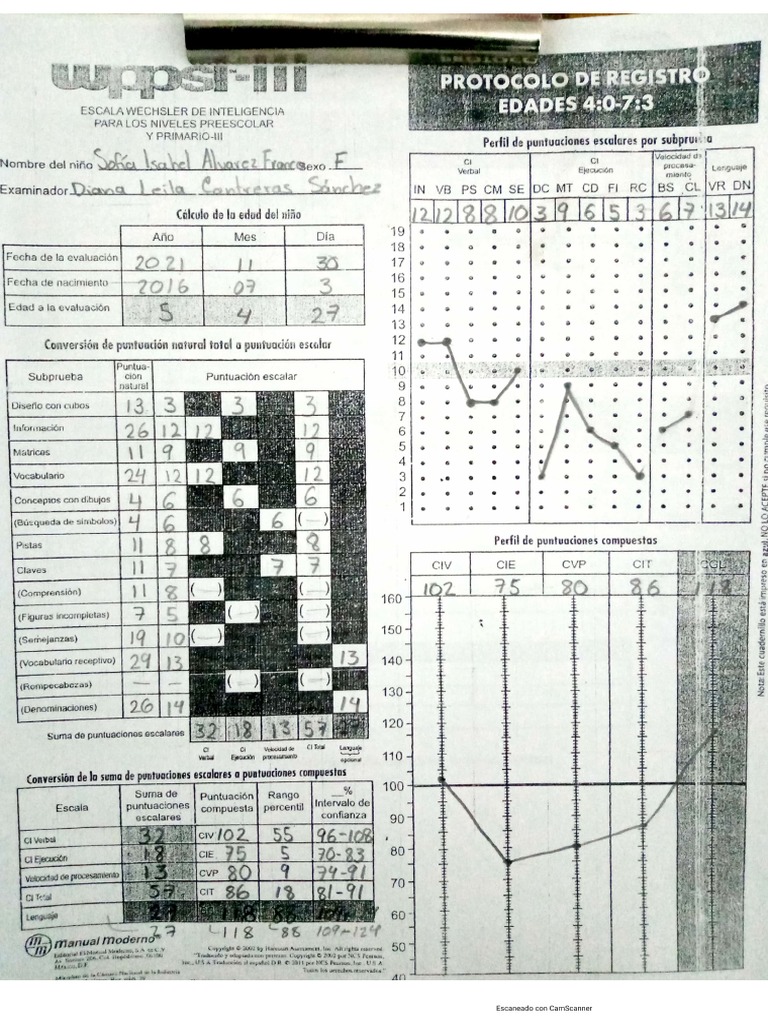 wppsi-III
ESCALA WECHSLER DE INTELIGENCIA
PARA LOS NIVELES PREESCOLAR
Y PRIMARIO-III
PROTOCOLO DE REGISTRO
EDADES 4:0-7:3
Nombre del niño Sofía Isabel Alvarez Franco Sexo F
Examinador Diana Leila Contreras Sánchez
Cálculo de la edad del niño
Año Mes Día
Fecha de la evaluación 2021 11 30
Fecha de nacimiento 2016 07 3
Edad a la evaluación 5 4 27
Conversión de puntuación natural total a puntuación escalar
Subprueba Puntuación natural Puntuación escalar
Diseño con cubos 13 3 3 3
Información 26 12 12 12
Matrices 11 9 9 9
Vocabulario 24 12 12 12
Conceptos con dibujos 4 6 6 6
(Búsqueda de símbolos) 4 6 6 (—)
Pistas 11 8 8 8
Claves 11 7 7 7
(Comprensión) 11 8 (—) (—)
(Figuras incompletas) 7 5 (—) (—)
(Semejanzas) 19 10 (—) (—)
(Vocabulario receptivo) 29 13 13
(Rompecabezas) — — (—) (—)
(Denominaciones) 26 14 14
Suma de puntuaciones escalares 32 18 13 57 27
CI Verbal CI Ejecución Velocidad de procesamiento CI Total Lenguaje opcional
Conversión de la suma de puntuaciones escalares a puntuaciones compuestas
Escala Suma de puntuaciones escalares Puntuación compuesta Rango percentil __% Intervalo de confianza
CI Verbal 32 CIV 102 55 96-108
CI Ejecución 18 CIE 75 5 70-83
Velocidad de procesamiento 13 CVP 80 9 74-91
CI Total 57 CIT 86 18 81-91
Lenguaje 27 118 88
27 118 88 109-124
manual moderno
Editorial El Manual Moderno, S.A. de C.V.
México, D.F.
Miembro de la Cámara Nacional de la Industria
Copyright © 2002 by Harcourt Assessment, Inc. All rights reserved.
Todos los derechos reservados."
Perfil de puntuaciones escalares por subprueba
CI Verbal CI Ejecución Velocidad de procesamiento Lenguaje
IN VB PS CM SE DC MT CD FI RC BS CL VR DN
12 12 8 8 10 3 9 6 5 3 6 7 13 14
19
18
17
16
15
14
13
12
11
10
9
8
7
6
5
4
3
2
1
Perfil de puntuaciones compuestas
CIV CIE CVP CIT CGL
102 75 80 86 118
160
150
140
130
120
110
100
90
80
70
60
50
40
Nota: Este cuadernillo está impreso en azul. NO LO ACEPTE si no cumple ese requisito
Escaneado con CamScanner